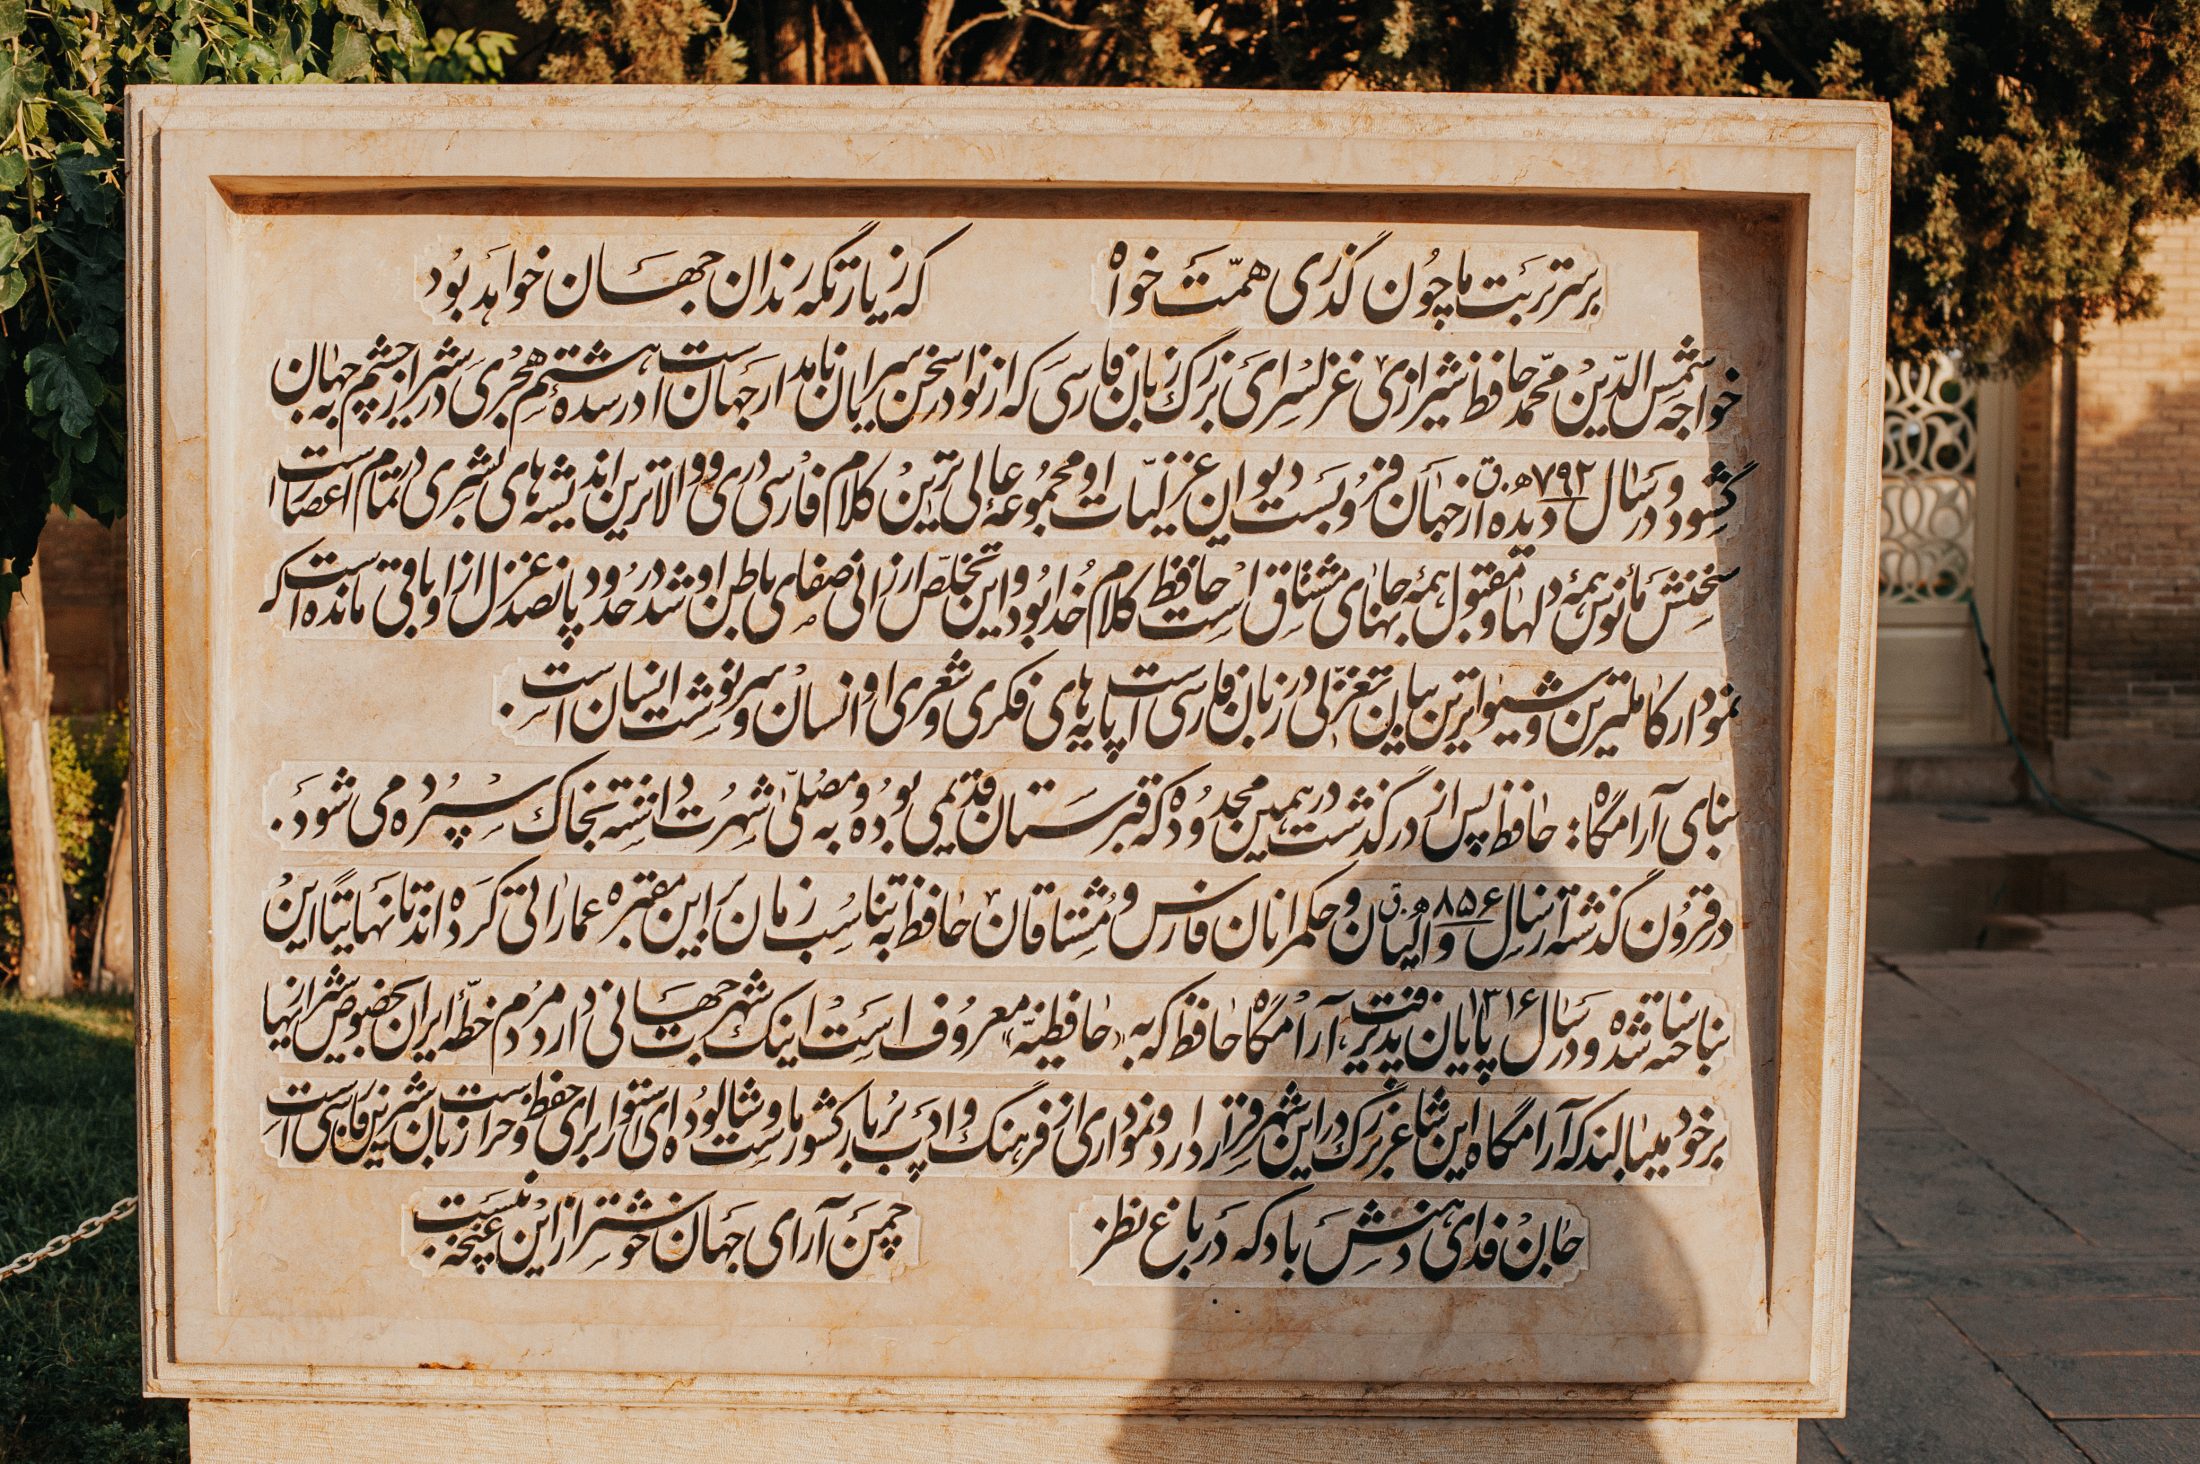 بر سر تربت ما چون گذری همّت خواه که زیارتگه رندان جهان خواهد بود
خواجه شمس الدّین محمّد حافظ شیرازی غزلسرای بزرگ زبان فارسی که از نوادر سخن سرایان نامدار جهان است در سده هشتم هجری در شیراز چشم به جهان
گشود و در سال ۷۹۲ ه‍.ق دیده از جهان فرو بست دیوان غزلیّات او مجموعه عالی ترین کلام فارسی دری و والاترین اندیشه های بشری در تمام اعصار است
سخنش مأنوس همه دلها و مقبول همه جانهای مشتاق است حافظ کلام خدا بود و این تخلّص ارزانی صفای باطن او شد در حدود پانصد غزل از او باقی مانده است که
نمودار کاملترین و شیواترین بیان تغزّلی در زبان فارسی است پایه های فکری و شعری او انسان و سرنوشت انسان است.
بنای آرامگاه: حافظ پس از درگذشت در همین محدوده که قبرستان قدیمی بوده و به مصلّی شهرت داشته بخاک سپرده می شود.
در قرون گذشته از سال ۸۵۶ ه‍.ق والیان و حکمرانان فارس و مشتاقان حافظ به تناسب زمان بر این مقبره عماراتی کرده اند تا نهایتاً این
بنا ساخته شده و در سال ۱۳۱۶ پایان پذیرفت، آرامگاه حافظ که به «حافظیّه» معروف است اینک شهرت جهانی دارد مردم خطّه ایران بخصوص شیرازیها
بر خود میبالند که آرامگاه این شاعر بزرگ در این شهر قرار دارد و نمودار‌ی از فرهنگ و ادب پربار کشور ماست و شالوده ای استوار برای حفظ و حراست زبان شیرین فارسی است
جان فدای دهنش باد که در باغ نظر چمن آرای جهان خوشتر از این غنچه نبست